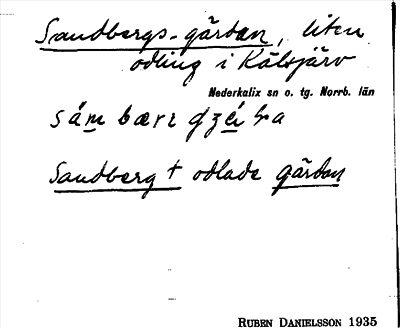 Sandbergs-gärdan, liten
odling i Kälsjärv
Nederkalix sn o. tg. Norrb. län
Sandberg † odlade gärdan
RUBEN DANIELSSON 1935